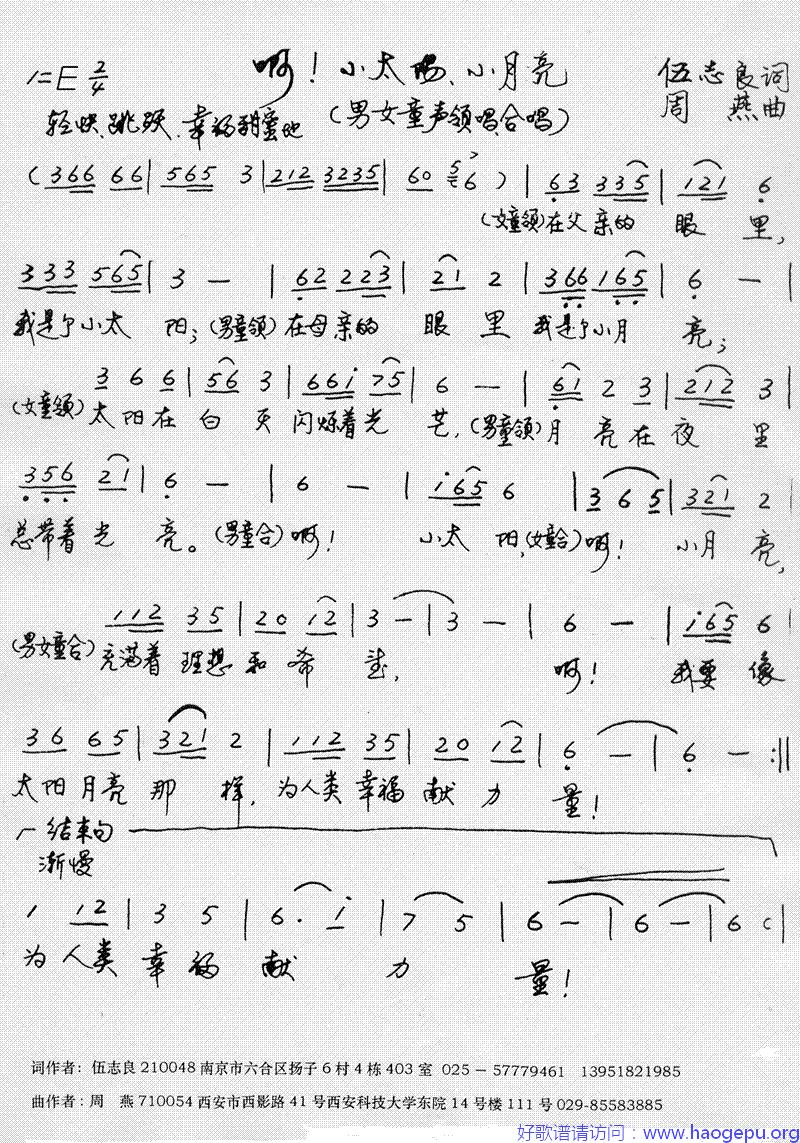 1=E 2/4
啊！小太阳、小月亮
伍志良词
周 燕曲
轻快、跳跃、幸福甜蜜地
（男女童声领唱、合唱）
( 366 66 | 565 3 | 212 3235 | 60 5 6 ) | 63 335 | 121 6
(女童领)在父亲的 眼 里,
333 565 | 3 — | 62 223 | 21 2 | 366 165 | 6 — |
我是个小太 阳; (男童领)在母亲的 眼 里 我是个小月 亮;
3 6 6 | 56 3 | 66i 75 | 6 — | 61 2 3 | 212 3 |
(女童领)太阳在 白 天 闪烁着光 芒, (男童领)月 亮在夜 里
356 21 | 6 — | 6 — | i65 6 | 3 6 5 | 321 2 |
总带着光 亮。(男童合)啊！ 小太 阳,(女童合)啊！ 小月 亮,
112 35 | 20 12 | 3 — | 3 — | 6 — | i65 6 |
(男女童合)充满着 理想 和 希 望, 啊！ 我要 像
36 65 | 321 2 | 112 35 | 20 12 | 6 — | 6 — :||
太阳月亮 那 样, 为人类幸福 献 力 量！
结束句
渐慢
1 12 | 3 5 | 6. i | 7 5 | 6 — | 6 — | 6 0 |
为 人类 幸 福 献 力 量！
词作者：伍志良 210048 南京市六合区扬子 6 村 4 栋 403 室 025－57779461 13951821985
曲作者：周 燕 710054 西安市西影路 41 号西安科技大学东院 14 号楼 111 号 029-85583885
好歌谱请访问：www.haogepu.org